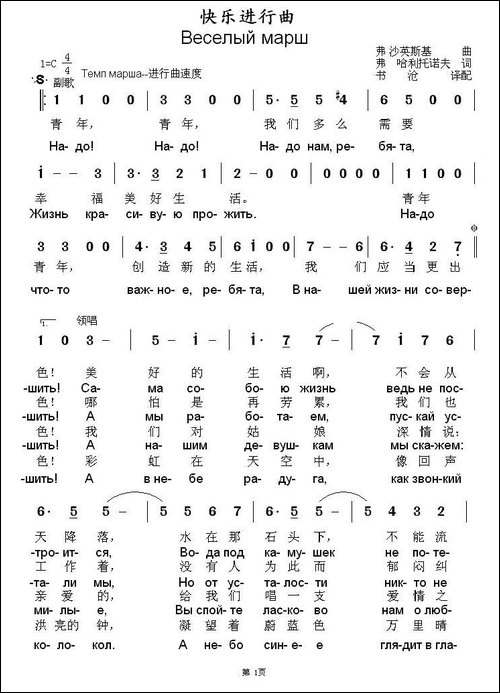 快乐进行曲
Веселый марш
弗 沙英斯基 曲
1=C 4/4 弗 哈利托诺夫 词
Темп марша--进行曲速度 书 沧 译配
副歌
1 1 0 0 | 3 3 0 0 | 5· 5 5 #4 | 6 5 0 0 |
青 年, 青 年, 我 们 多 么 需 要
На- до! На- до! На- до нам, ре- бя- та,
i - - 3 | 3· 3 2 1 | 2 - 0 0 | 0 0 0 0 | 1 1 0 0 |
幸 福 美 好 生 活。 青 年
Жизнь кра- си- ву- ю про- жить. На-до
3 3 0 0 | 4· 3 4 5 | 6 i 0 0 | 7 - - 5 | 6· 4 2 7 |
青 年, 创 造 新 的 生 活, 我 们 应 当 更 出
что-то важ- но- е, ре- бя- та, В на- шей жиз- ни со- вер-
1. 领唱
1 0 3 - | 5 - i - | i - · 7 | 7 - - - | 7 i 7 6 |
色! 美 好 的 生 活 啊, 不 会 从
-шить! Са- ма со- бо- ю жизнь ведь не пос-
色! 哪 怕 是 再 劳 累, 我 们 也
-шить! А мы ра- бо- та- ем, пус- кай ус-
色! 我 们 对 姑 娘 深 情 说:
-шить! А на- шим де- вуш- кам мы ска- жем:
色! 彩 虹 在 天 空 中, 像 回 声
-шить! А в не- бе ра- ду- га, как звон- кий
6· 6 5 - | 5 - - - | 5 6 6 7 | 6· 5 5 - | 5 - - - | 5 4 3 2 |
天 降 落, 水 在 那 石 头 下, 不 能 流
-тро- ит- ся, Во- да под ка- му- шек не по- те-
工 作 着, 没 有 人 为 此 而 郁 闷 纠
-та- ли мы, Но от ус- та- лос- ти ник- то не
亲 爱 的, 给 我 们 唱 一 支 爱 情 之
ми- лы- е, Вы спой- те лас- ко- во нам о люб-
洪 亮 的 钟, 凝 望 着 蔚 蓝 色 万 里 晴
ко- ло- кол. А не- бо си- не- е гля- дит в гла-
第 1页